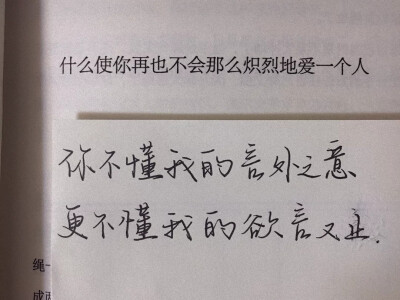 什么使你再也不会那么炽烈地爱一个人
你不懂我的言外之意
更不懂我的欲言又止.
绳一